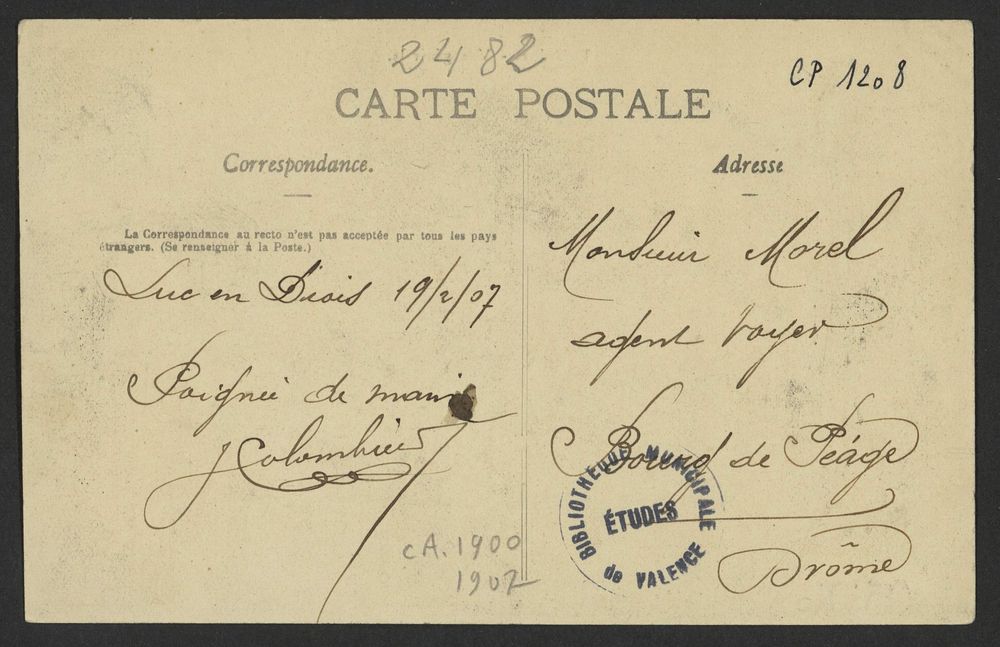 2482
CP 1208
CARTE POSTALE
Correspondance.
La Correspondance au recto n'est pas acceptée par tous les pays
étrangers. (Se renseigner à la Poste.)
Luc en Diois 19/2/07
Poignée de main
J Colombier
CA. 1900
1907
Adresse
Monsieur Morel
agent voyer
Bourg de Péage
Drôme
BIBLIOTHÈQUE MUNICIPALE
ÉTUDES
de VALENCE